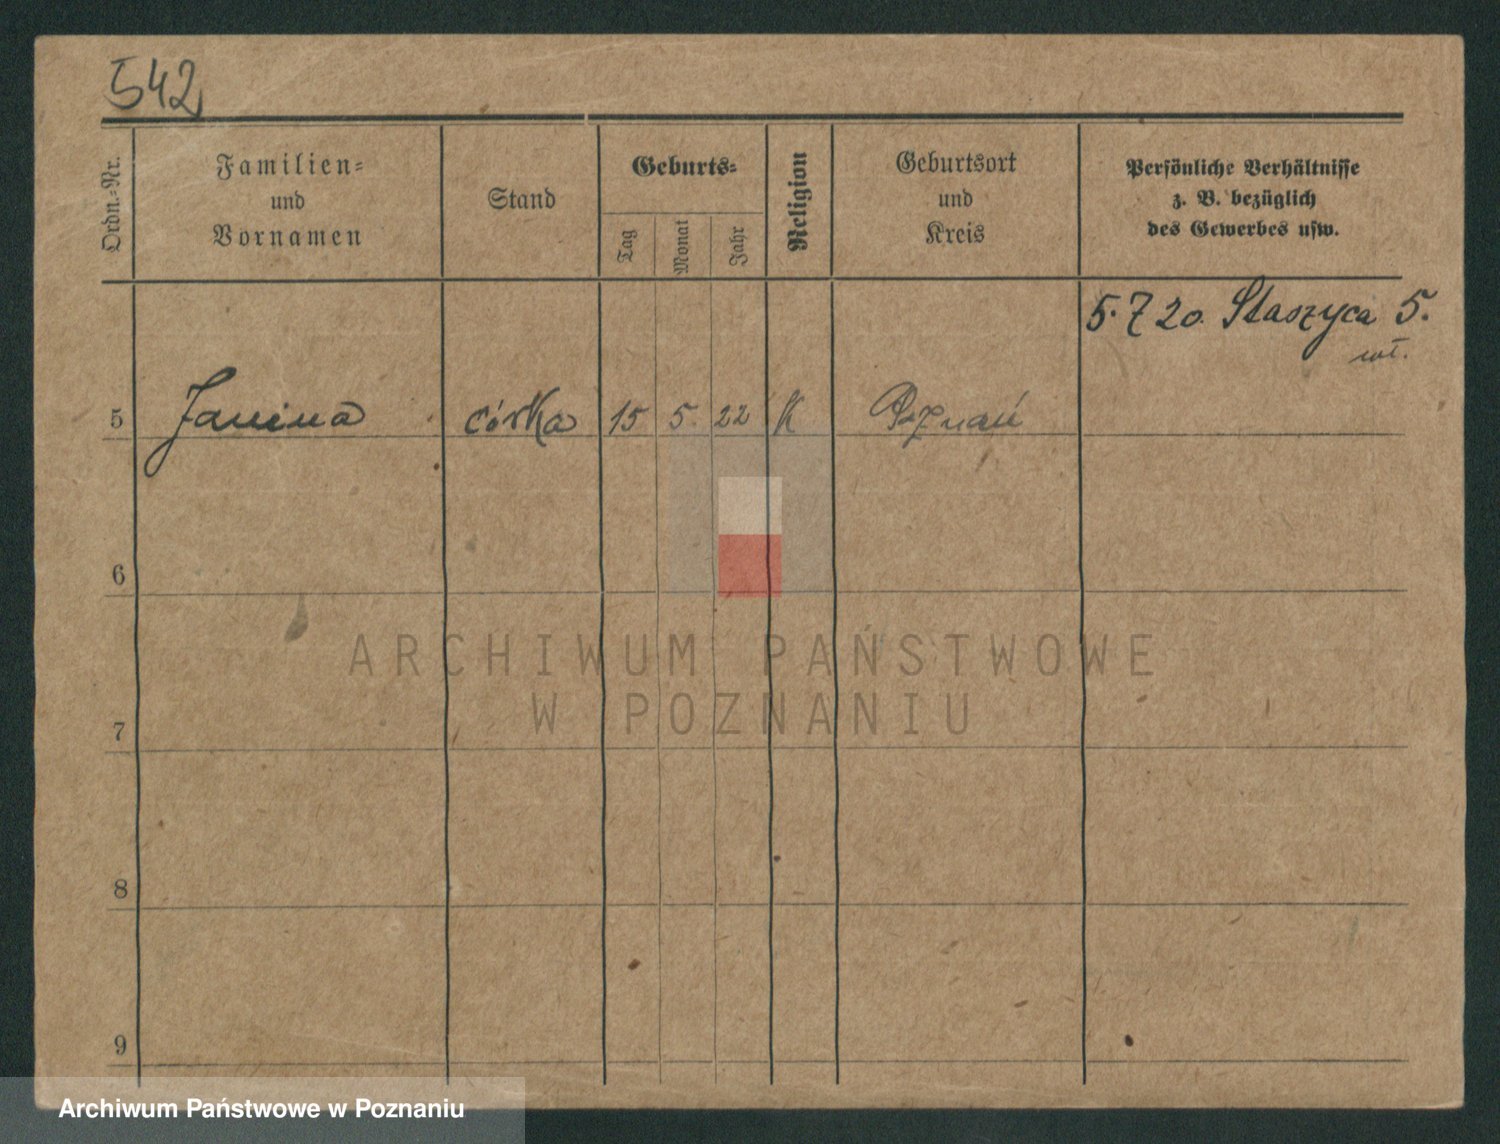 542
Ordn.-Nr.
Familien-
und
Vornamen
Stand
Geburts-
Tag
Monat
Jahr
Religion
Geburtsort
und
Kreis
Persönliche Verhältnisse
z. B. bezüglich
des Gewerbes usw.
5. 7 20. Staszyca 5.
wł.
5 Janina córka 15 5. 22 K Poznań
6
ARCHIWUM PAŃSTWOWE
W POZNANIU
7
8
9
Archiwum Państwowe w Poznaniu